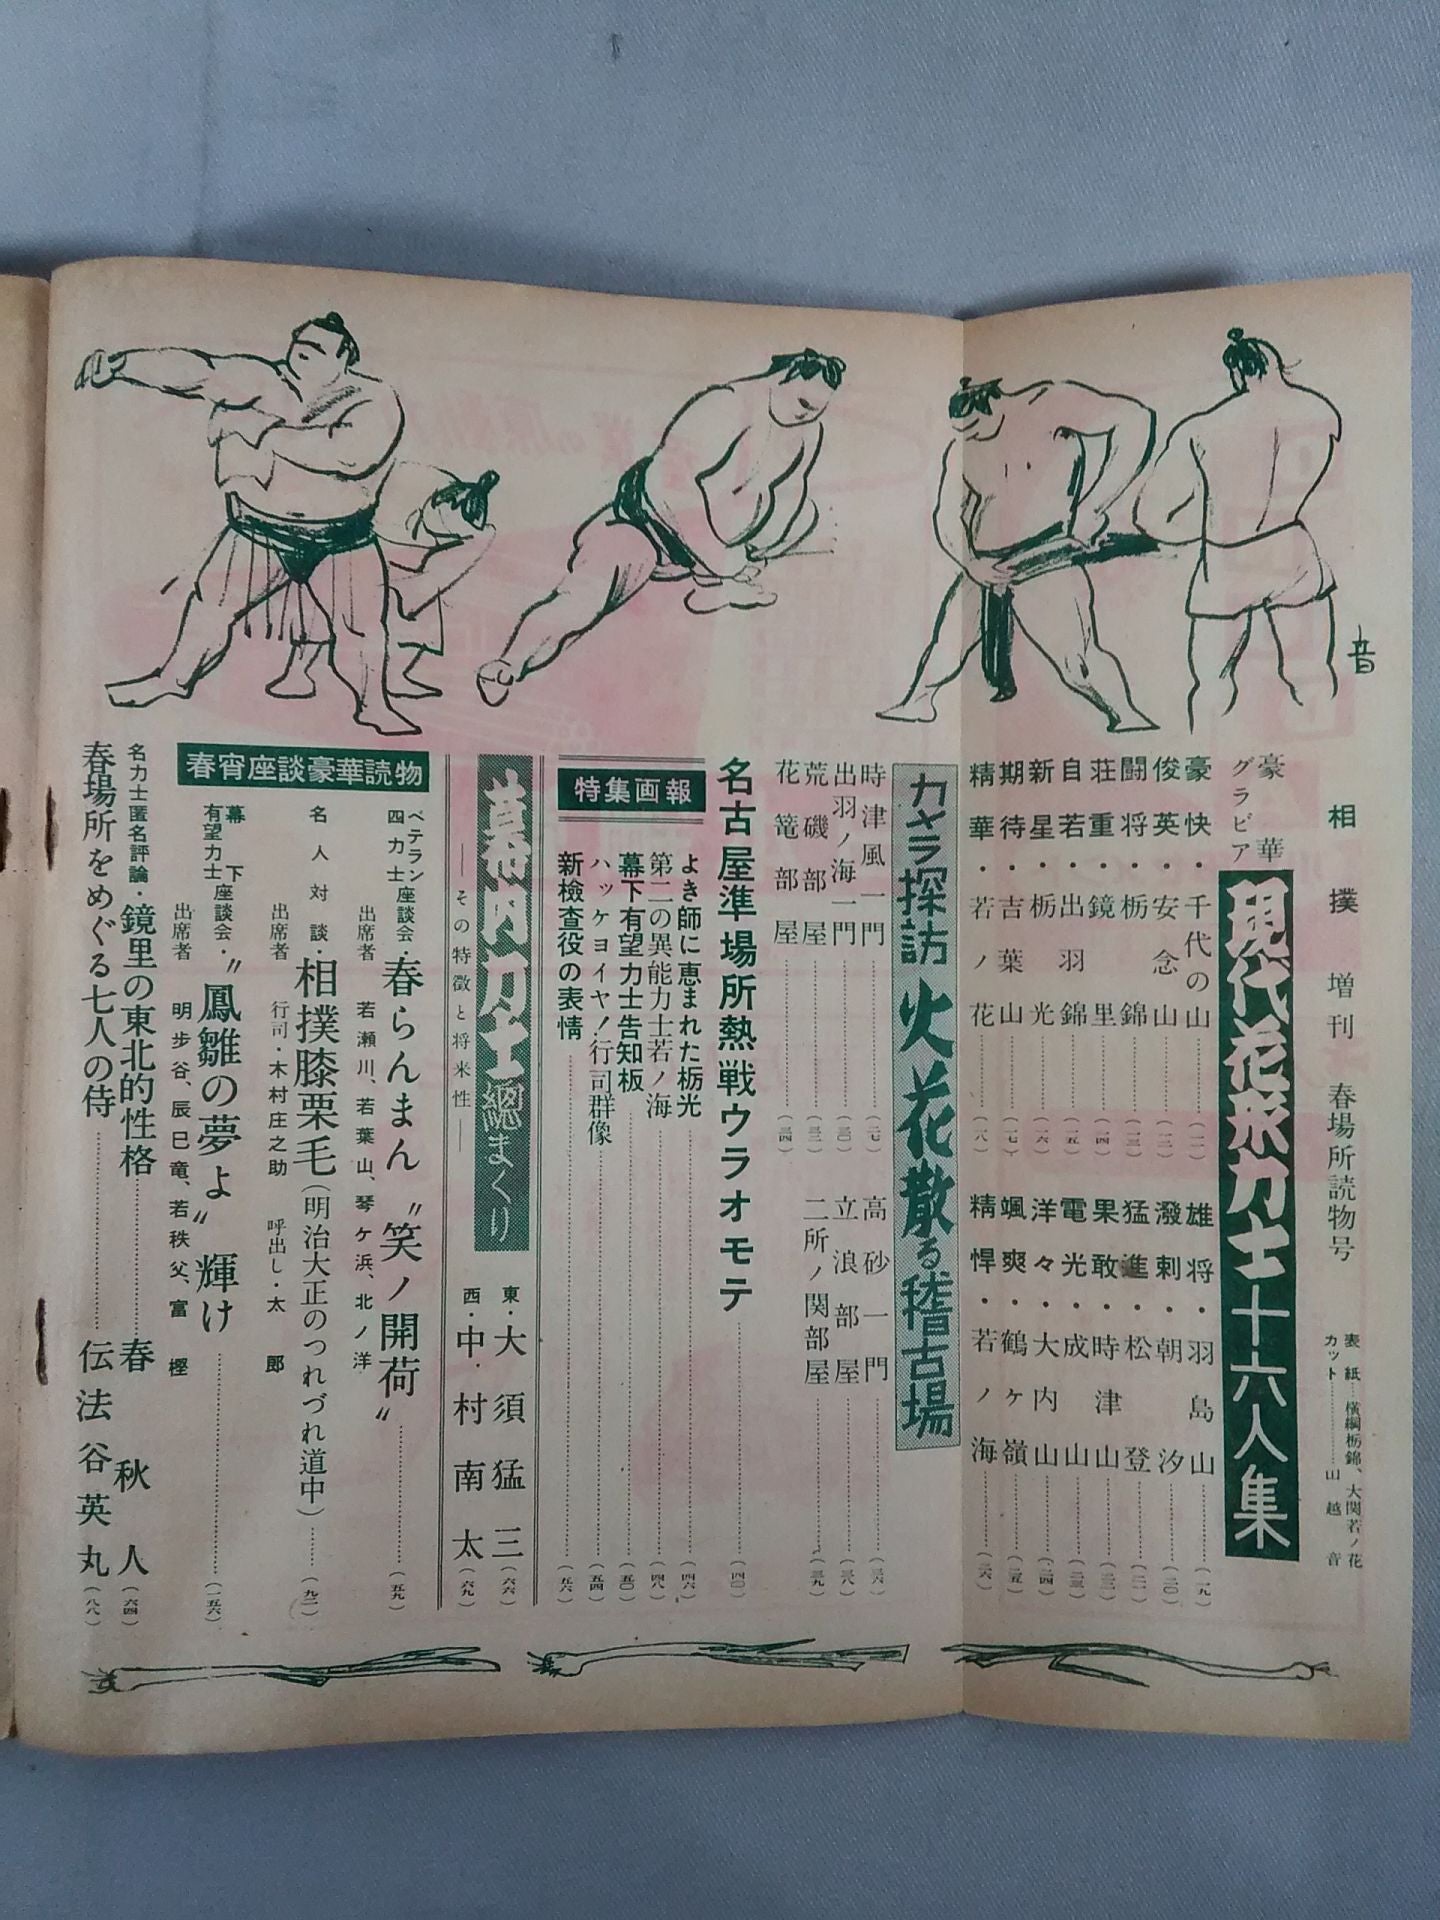 相撲増刊 春場所読物号
表紙…横綱栃錦、大関若ノ花
カット………山越音
豪華グラビア
現代花形力士十六人集
豪快・千代の山………(一一)
俊英・安念山………(一二)
闘将・栃錦………(一三)
荘重・鏡里………(一四)
自若・出羽錦………(一五)
新星・栃光………(一六)
期待・吉葉山………(一七)
精華・若ノ花………(一八)
雄将・羽島山………(一九)
潑剌・朝汐………(二〇)
猛進・松登………(二一)
果敢・時津山………(二二)
電光・成山………(二三)
洋々・大内山………(二四)
颯爽・鶴ヶ嶺………(二五)
精悍・若ノ海………(二六)
カメラ探訪 火花散る稽古場
時津風一門………(二七)
出羽ノ海一門………(三〇)
荒磯部屋………(三三)
花篭部屋………(三四)
高砂一門………(三六)
立浪部屋………(三八)
二所ノ関部屋………(三九)
名古屋準場所熱戦ウラオモテ………(四〇)
特集画報
よき師に恵まれた栃光………(四六)
第二の異能力士若ノ海………(四八)
幕下有望力士告知板………(五〇)
ハッケヨイヤ!行司群像………(五四)
新検査役の表情………(五六)
幕内力士總まくり
―その特徴と将来性―
東・大須猛三(六六)
西・中村南太(六九)
春宵座談豪華読物
ベテラン四力士座談会・春らんまん〝笑ノ開荷〟………(五九)
出席者 若瀬川、若葉山、琴ケ浜、北ノ洋
名人対談・相撲膝栗毛(明治大正のつれづれ道中)……(九二)
出席者 行司・木村庄之助 呼出し・太郎
幕下有望力士座談会・〝鳳雛の夢よ〟輝け………(一五六)
出席者 明歩谷、辰巳竜、若秩父、富樫
名力士匿名評論・鏡里の東北的性格………春秋人(六四)
春場所をめぐる七人の侍………伝法谷英丸(八八)
音